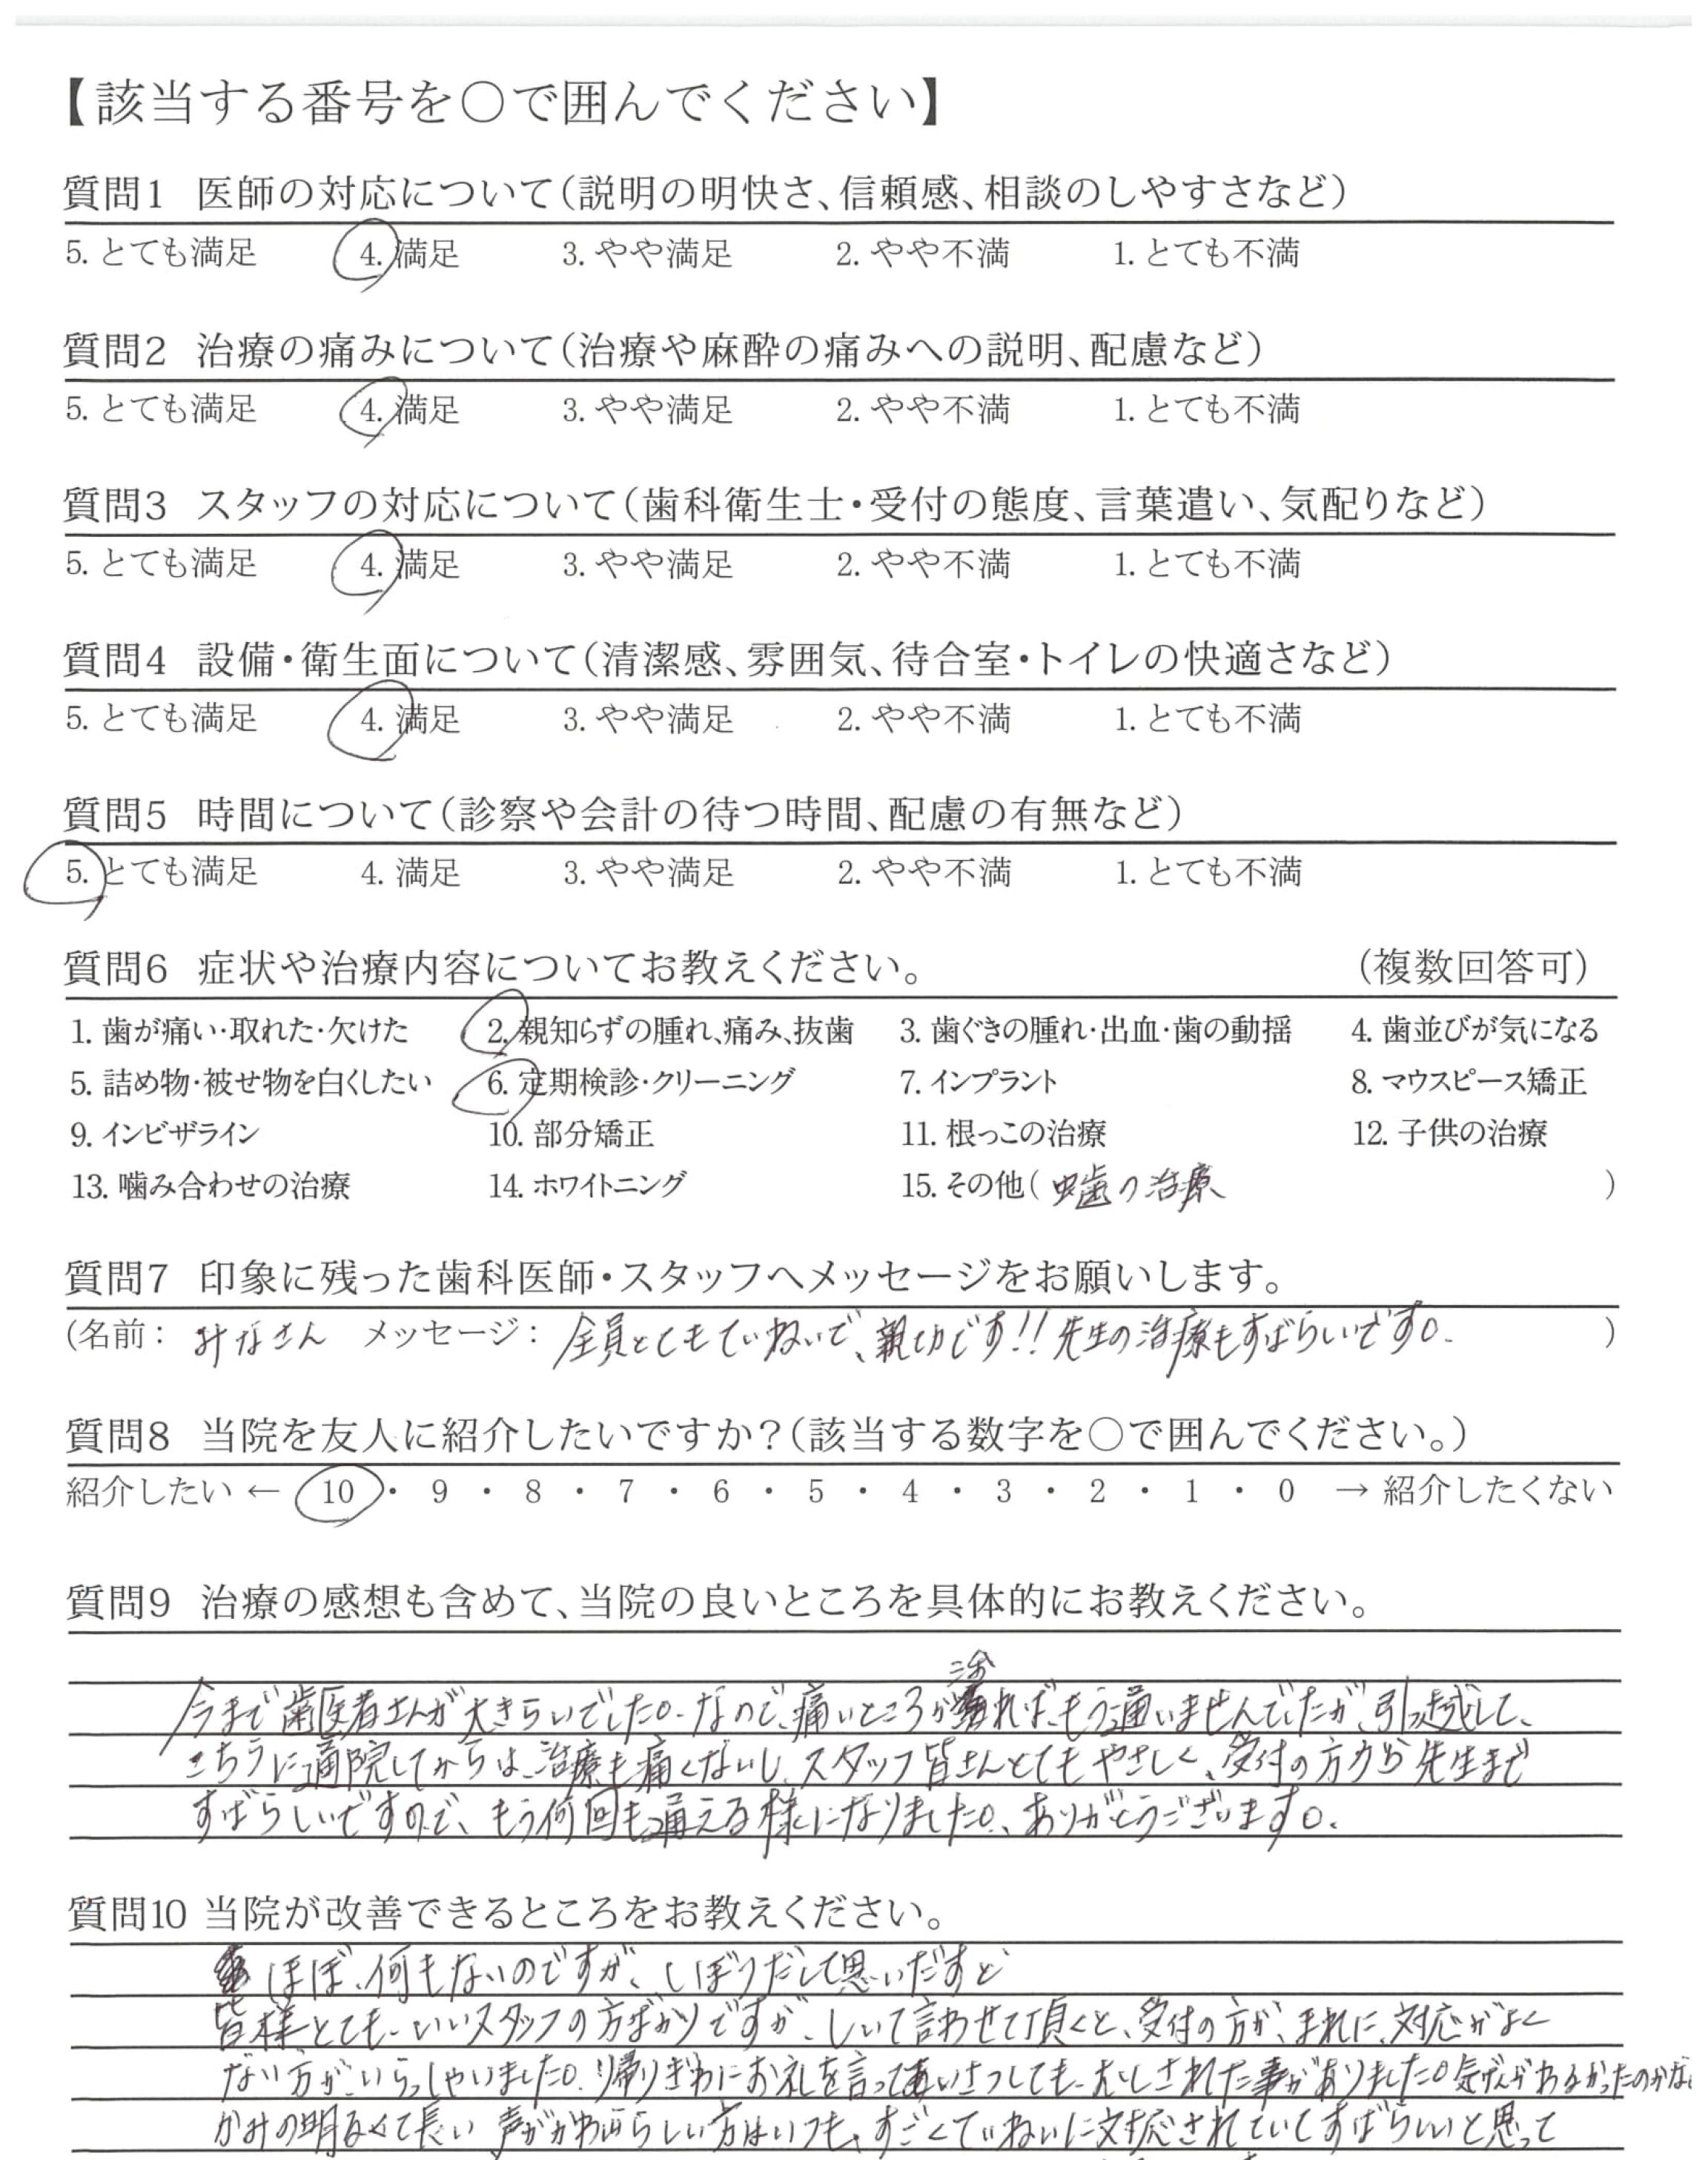 【該当する番号を○で囲んでください】
質問1 医師の対応について(説明の明快さ、信頼感、相談のしやすさなど)
5. とても満足 4. 満足 3. やや満足 2. やや不満 1. とても不満
質問2 治療の痛みについて(治療や麻酔の痛みへの説明、配慮など)
5. とても満足 4. 満足 3. やや満足 2. やや不満 1. とても不満
質問3 スタッフの対応について(歯科衛生士・受付の態度、言葉遣い、気配りなど)
5. とても満足 4. 満足 3. やや満足 2. やや不満 1. とても不満
質問4 設備・衛生面について(清潔感、雰囲気、待合室・トイレの快適さなど)
5. とても満足 4. 満足 3. やや満足 2. やや不満 1. とても不満
質問5 時間について(診察や会計の待つ時間、配慮の有無など)
5. とても満足 4. 満足 3. やや満足 2. やや不満 1. とても不満
質問6 症状や治療内容についてお教えください。 (複数回答可)
1. 歯が痛い・取れた・欠けた 2. 親知らずの腫れ、痛み、抜歯 3. 歯ぐきの腫れ・出血・歯の動揺 4. 歯並びが気になる
5. 詰め物・被せ物を白くしたい 6. 定期検診・クリーニング 7. インプラント 8. マウスピース矯正
9. インビザライン 10. 部分矯正 11. 根っこの治療 12. 子供の治療
13. 噛み合わせの治療 14. ホワイトニング 15. その他( 虫歯の治療 )
質問7 印象に残った歯科医師・スタッフへメッセージをお願いします。
(名前: みなさん メッセージ: 全員とてもていねいで、親切です!! 先生の治療もすばらいです。 )
質問8 当院を友人に紹介したいですか?(該当する数字を○で囲んでください。)
紹介したい ← 10 ・ 9 ・ 8 ・ 7 ・ 6 ・ 5 ・ 4 ・ 3 ・ 2 ・ 1 ・ 0 → 紹介したくない
質問9 治療の感想も含めて、当院の良いところを具体的にお教えください。
今まで歯医者さんが大きらいでした。なので、痛いところが治れば、もう通いませんでしたが、引っ越して、
こちらに通院してからは、治療も痛くないし、スタッフ皆さんとてもやさしく、受付の方から先生まで
すばらしいですので、もう何回も通える様になりました。、ありがとうございます。
質問10 当院が改善できるところをお教えください。
ほぼ、何もないのですが、しぼりだして思いだすと
皆様とても、いいスタッフの方ばかりですが、しいて言わせて頂くと、受付の方が、まれに、対応がよく
ない方が、いらっしゃいました。帰りぎわにお礼を言ってあいさつしても、むしされた事がありました。気げんがわるかったのかな
かみの明るくて長い 声がかわいらしい方はいつも、すごくていねいに対応されていてすばらしいと思って